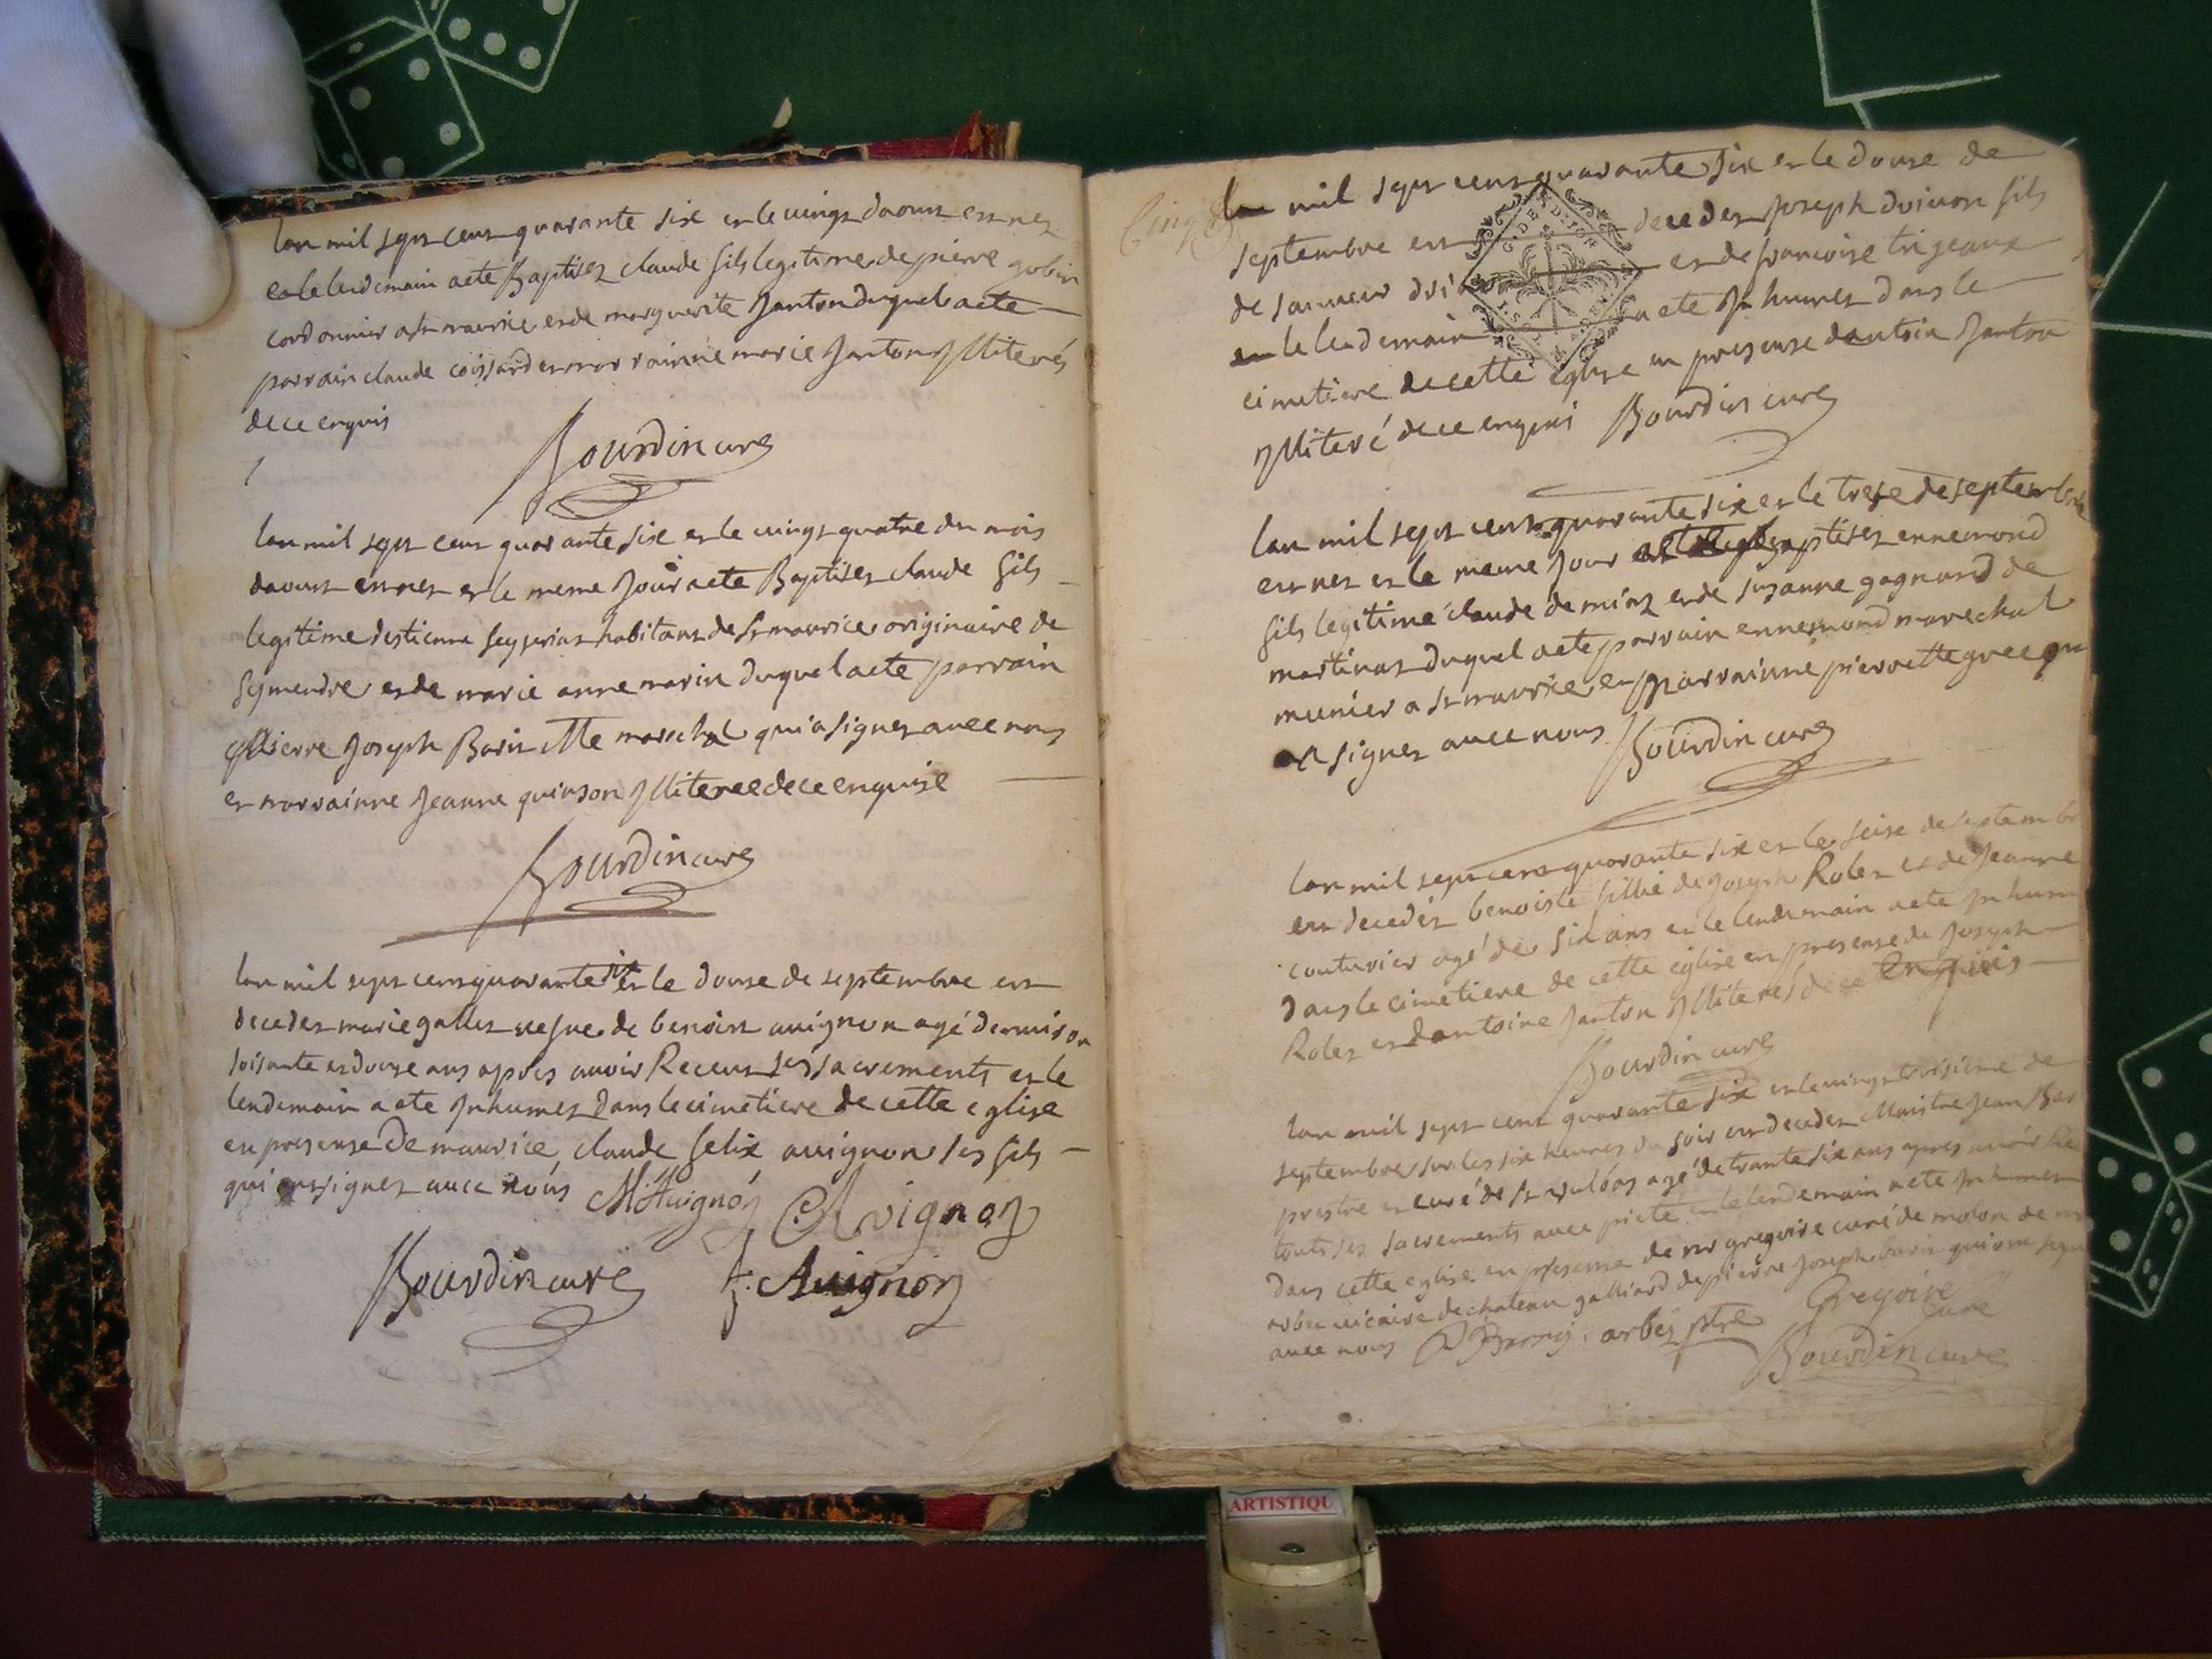 lan mil sept cens quarante six et le vingt daoust est nez
et le lendemain a ete Baptisez claude fils legitime de pierre gobin
cordonnier a st maurice et de marguerite Janton duquel a ete
parrain claude coissard et marrainne marie Janton Illiterés
de ce enquis
Bourdin curé
lan mil sept cens quarante six et le vingt quatre du mois
daoust est nez et le meme Jour a ete Baptisez claude fils
legitime destienne habitant de st maurice originaire de
et de marie anne marin duquel a ete parrain
pierre Joseph Barin Me marechal qui a signez avec nous
et marrainne Jeanne quinson Illiteree de ce enquise
Bourdin curé
lan mil sept cens quarante six et le douse de septembre est
decedez marie gallet vefve de benoist avignon agé denviron
soisante et douse ans apres avoir Receus ses sacrements et le
lendemain a ete Inhumez dans le cimetiere de cette eglise
en presense de maurice claude felix avignon ses fils
qui ont signez avec nous M Avignon C Avignon
Bourdin curé f. Avignon
lan mil sept cens quarante six et le douse de
septembre est decedez Joseph fils
de et de francoise trijeaux
et le lendemain a ete Inhumez dans le
cimetiere de cette eglise en presense dantoin Janton
Illiteré de ce enquis Bourdin curé
G. DE DIJON
lan mil sept cens quarante six et le trese de septembre
est nez et le meme Jour a ete baptisez ennemond
fils legitime claude de et de susanne gagnard de
martinas duquel a ete parrain ennemond marechal
munier a st maurice et marrainne pierrette
signez avec nous Bourdin curé
lan mil sept cens quarante six et le seise de septembre
est decedéz benoiste fillie de Joseph Rolet et de Jeanne
couturier agé de six ans et le lendemain a ete Inhum
dans le cimetiere de cette eglise en presense de Joseph
Rolet et dantoine Janton Illiterés de ce enquis
Bourdin curé
lan mil sept cens quarante six et le vingt troisieme de
septembre sur les six heures du soir est decedez Maistre Jean
prestre et curé de st agé de trante six ans apres avoir
touts ses sacrements avec pieté et le lendemain a ete Inhumez
dans cette eglise en presense de mr gregoire curé de molon de mr
arbey vicaire de chateau galliard de pierre Joseph barin qui ont signe
avec nous arbey ptre Gregoire
curé
Bourdin curé
ARTISTIQU